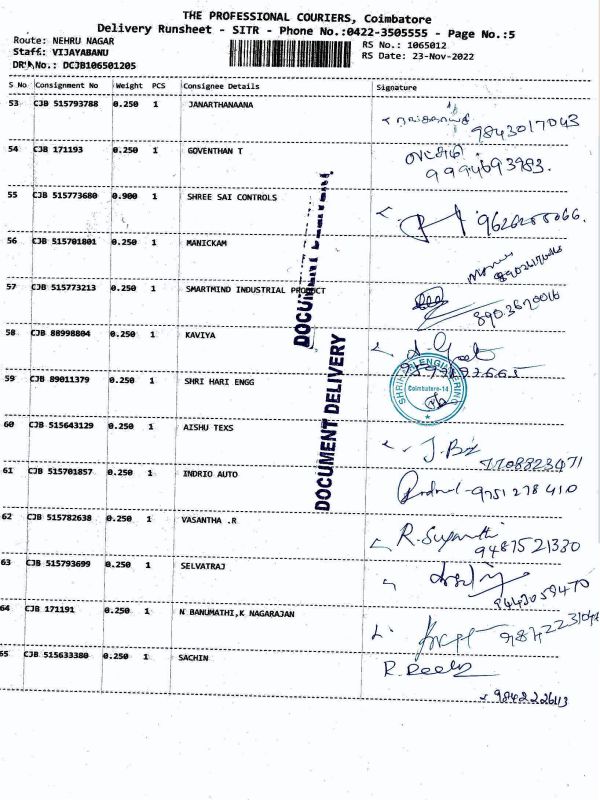 THE PROFESSIONAL COURIERS, Coimbatore
Delivery Runsheet - SITR - Phone No.:0422-3505555 - Page No.:5
Route: NEHRU NAGAR RS No.: 1065012
Staff: VIJAYABANU RS Date: 23-Nov-2022
DR No.: DCJB106501205
S No Consignment No Weight PCS Consignee Details Signature
53 CJB 515793788 0.250 1 JANARTHANAANA
9843017043
54 CJB 171193 0.250 1 GOVENTHAN T
9994693983.
55 CJB 515773680 0.900 1 SHREE SAI CONTROLS
56 CJB 515701801 0.250 1 MANICKAM
57 CJB 515773213 0.250 1 SMARTMIND INDUSTRIAL PRODUCT
8903670016
58 CJB 88998804 0.250 1 KAVIYA
59 CJB 89011379 0.250 1 SHRI HARI ENGG
Coimbatore-14
60 CJB 515643129 0.250 1 AISHU TEXS
7708823471
61 CJB 515701857 0.250 1 INDRIO AUTO
9751278410
62 CJB 515782638 0.250 1 VASANTHA .R
9487521330
63 CJB 515793699 0.250 1 SELVATRAJ
9443059470
64 CJB 171191 0.250 1 N BANUMATHI,K NAGARAJAN
65 CJB 515633380 0.250 1 SACHIN
9842222643
DOCUMENT DELIVERY
DOCUMENT DELIVERY